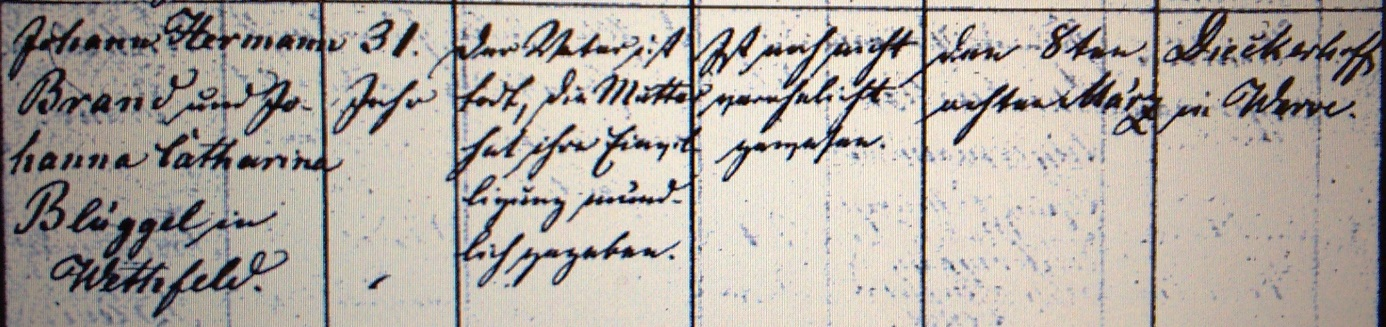 Johann Hermann
Brand und Jo-
hanna Catharina
Blüggel in
Wettefeld.
31.
Jahr
Der Vater ist
todt, die Mutter
hat ihre Einwil
ligung münd-
lich gegeben.
Ist noch nicht
verehelicht
gewesen.
den 8ten
achten März
Dieckerhoff
in Werve.